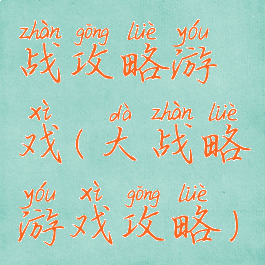 zhàn gōng lüè yóu
战攻略游
xì dà zhàn lüè
戏(大战略
yóu xì gōng lüè
游戏攻略)